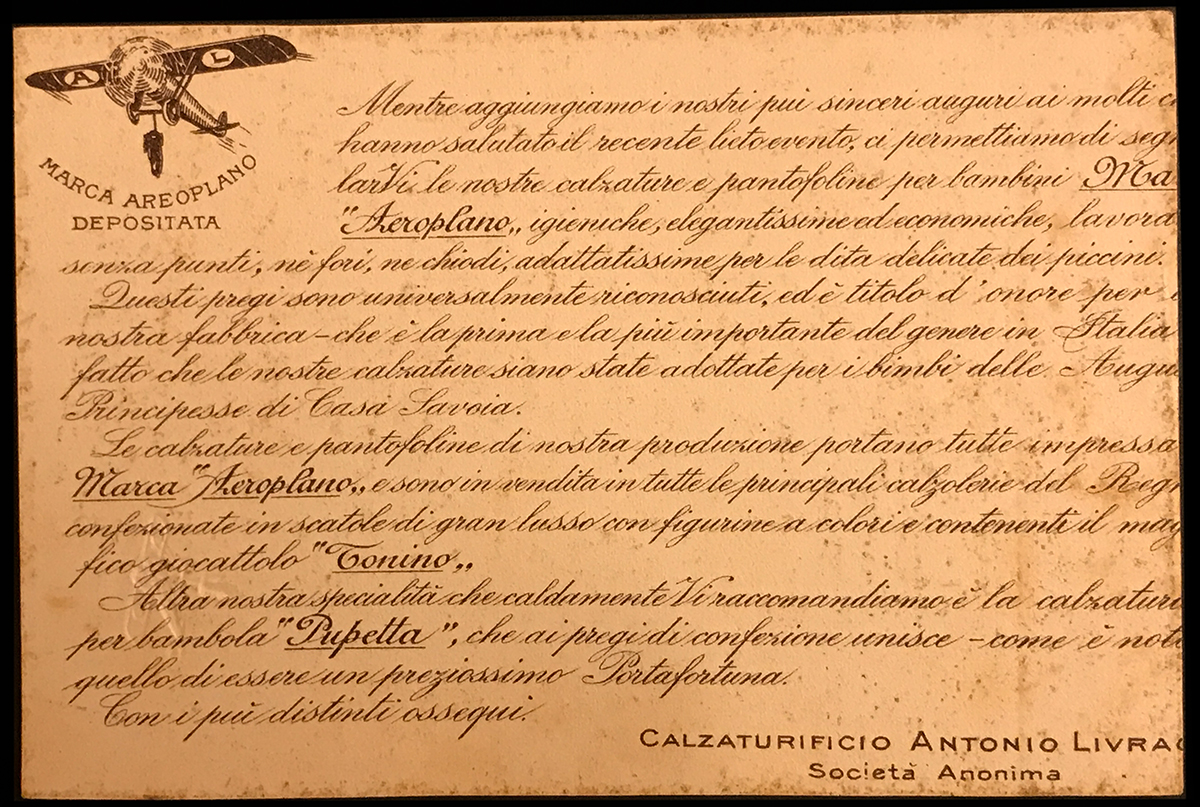 A L
MARCA AREOPLANO
DEPOSITATA
Mentre aggiungiamo i nostri piùi sinceri auguri ai molti c
hanno salutato il recente lieto evento, ci permettiamo di segn
larVi le nostre calzature e pantofoline per bambini Ma
"Aeroplano„ igieniche, elegantissime ed economiche, lavora
senza punti, nè fori, ne chiodi, adattatissime per le dita delicate dei piccini.
Questi pregi sono universalmente riconosciuti, ed è titolo d'onore per
nostra fabbrica - che è la prima e la più importante del genere in Italia
fatto che le nostre calzature siano state adottate per i bimbi delle Augu
Principesse di Casa Savoia.
Le calzature e pantofoline di nostra produzione portano tutte impressa
Marca "Aeroplano„ e sono in vendita in tutte le principali calzolerie del Regn
confezionate in scatole di gran lusso con figurine a colori e contenenti il mag
fico giocattolo "Tonino„
Altra nostra specialità che caldamente Vi raccomandiamo è la calzatur
per bambola "Pupetta", che ai pregi di confezione unisce - come è not
quello di essere un preziossimo Portafortuna.
Con i più distinti ossequi.
CALZATURIFICIO ANTONIO LIVRA
Società Anonima